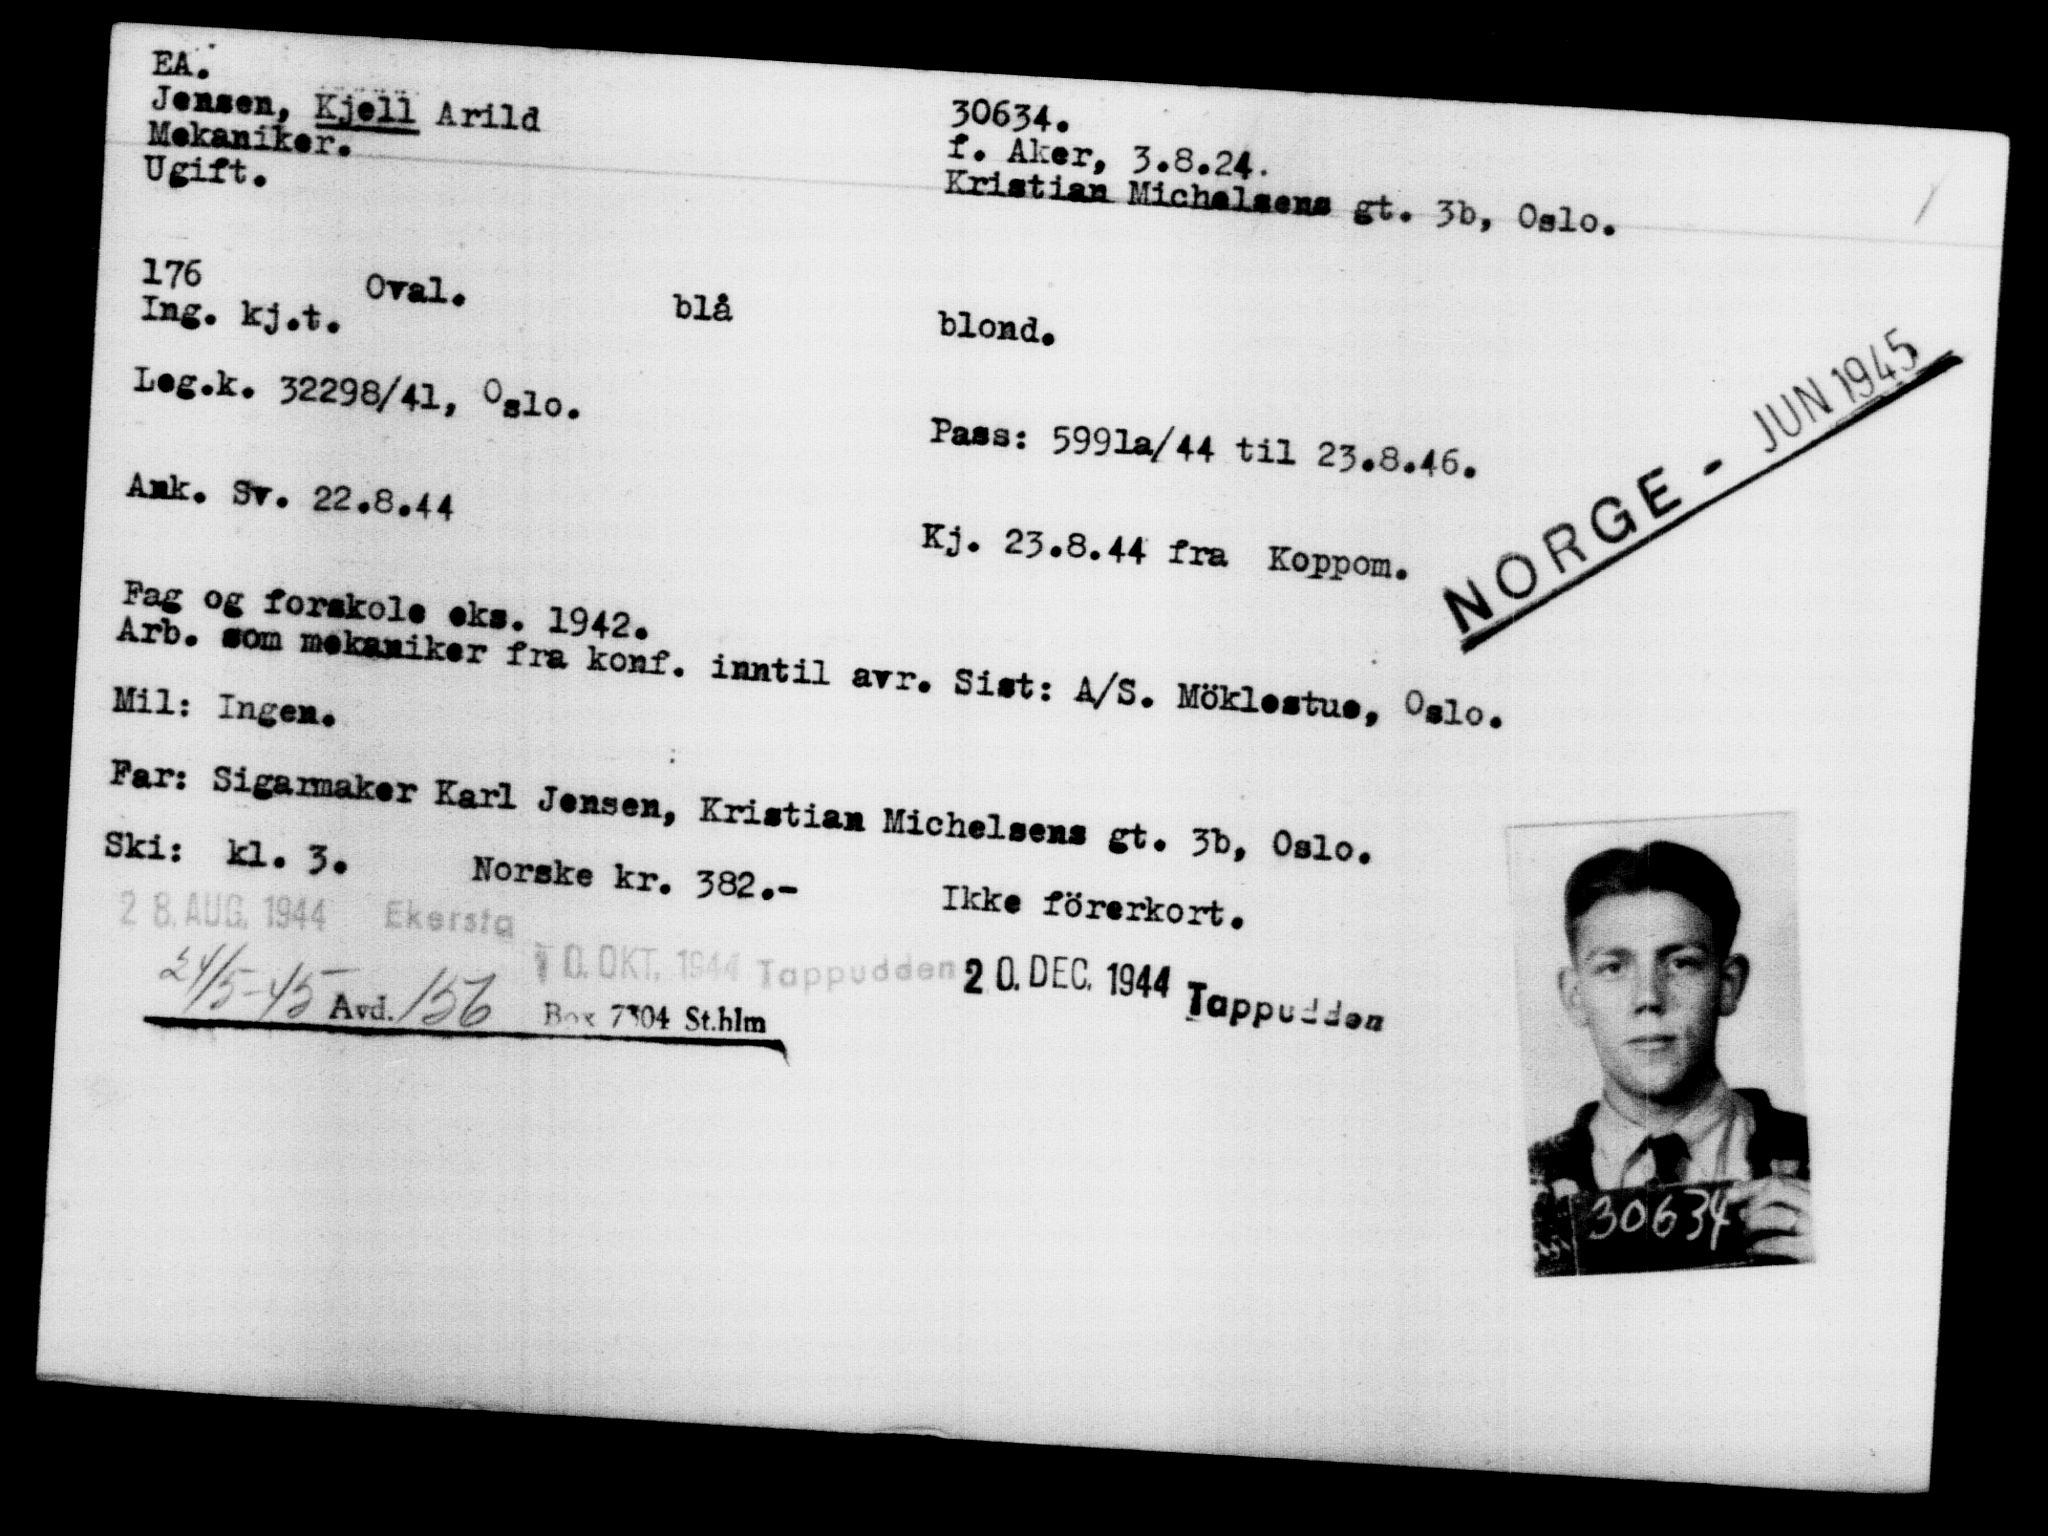 EA.
Jensen, Kjell Arild
30634.
Mekaniker.
f. Aker, 3.8.24.
Ugift.
Kristian Michelsens gt. 3b, Oslo.
176 Oval. blå blond.
Ing. kj.t.
Leg.k. 32298/41, Oslo.
Pass: 5991a/44 til 23.8.46.
NORGE - JUN 1945
Ank. Sv. 22.8.44
Kj. 23.8.44 fra Koppom.
Fag og forskole eks. 1942.
Arb. som mekaniker fra konf. inntil avr. Sist: A/S. Möklestue, Oslo.
Mil: Ingen.
Far: Sigarmaker Karl Jensen, Kristian Michelsens gt. 3b, Oslo.
Ski: kl. 3. Norske kr. 382.- Ikke förerkort.
28. AUG. 1944 Ekersta
10. OKT. 1944 Tappudden
20. DEC. 1944 Tappudden
24/5-45 Avd. 156 Box 7304 St.hlm
30634